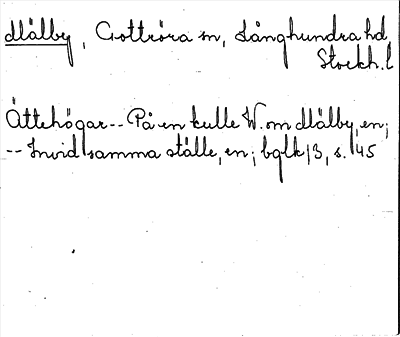 Mälby, Gottröra sn, Långhundra hd
Stockh. l
Ättehögar -- På en kulle W. om Mälby, en;
-- Invid samma ställe, en; bglk 13, s. 45